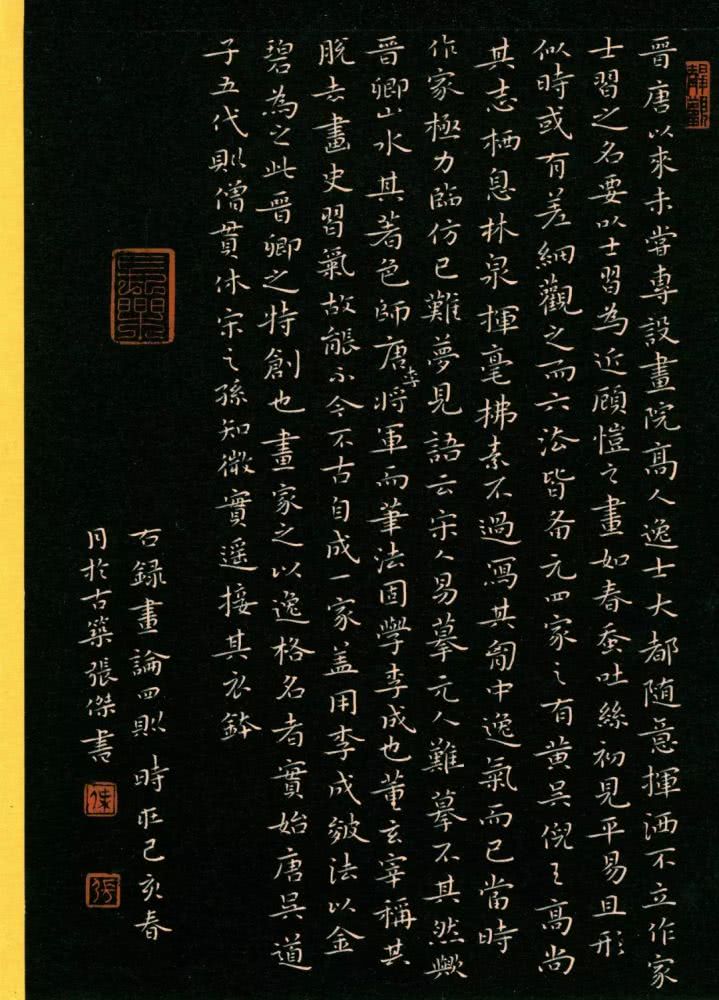 晉唐以來未嘗專設畫院高人逸士大都隨意揮洒不立作家
士習之名要以士習為近顧愷之畫如春蚕吐絲初見平易且形
似時或有差細觀之而六法皆备元四家之有黄吳倪王高尚
其志栖息林泉揮毫拂素不過寫其胷中逸氣而已當時
作家極力臨仿已難夢見語云宋人易摹元人難摹不其然歟
晉卿山水其著色師唐李將軍而筆法固學李成也董玄宰稱其
脫去畫史習氣故能不今不古自成一家盖用李成皴法以金
碧為之此晉卿之特創也畫家之以逸格名者實始唐吳道
子五代則僧貫休宋之孫知微實遥接其衣鉢
右録畫論四則時在己亥春
月於古築張傑書